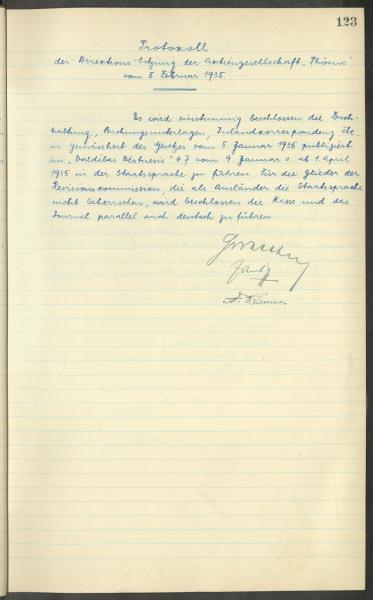 123
Protokoll
der Direktions-Sitzung der Aktiengesellschaft „Phönix"
vom 5. Februar 1935.
Es wird einstimmig beschlossen die Buch-
haltung, Buchungsunterlagen, Inlandkorrespondenz etc
in gemässheit des Gesetzes vom 5 Januar 1935 publiziert
im „Valdibas Vēstnesis" #7 vom 9 Januar c. ab 1. april
1935 in der Staatssprache zu führen. Für die Glieder der
Revisionskommission, die als Ausländer die Staatssprache
nicht beherrschen, wird beschlossen die Kasse und das
Journal parallel auch deutsch zu führen.